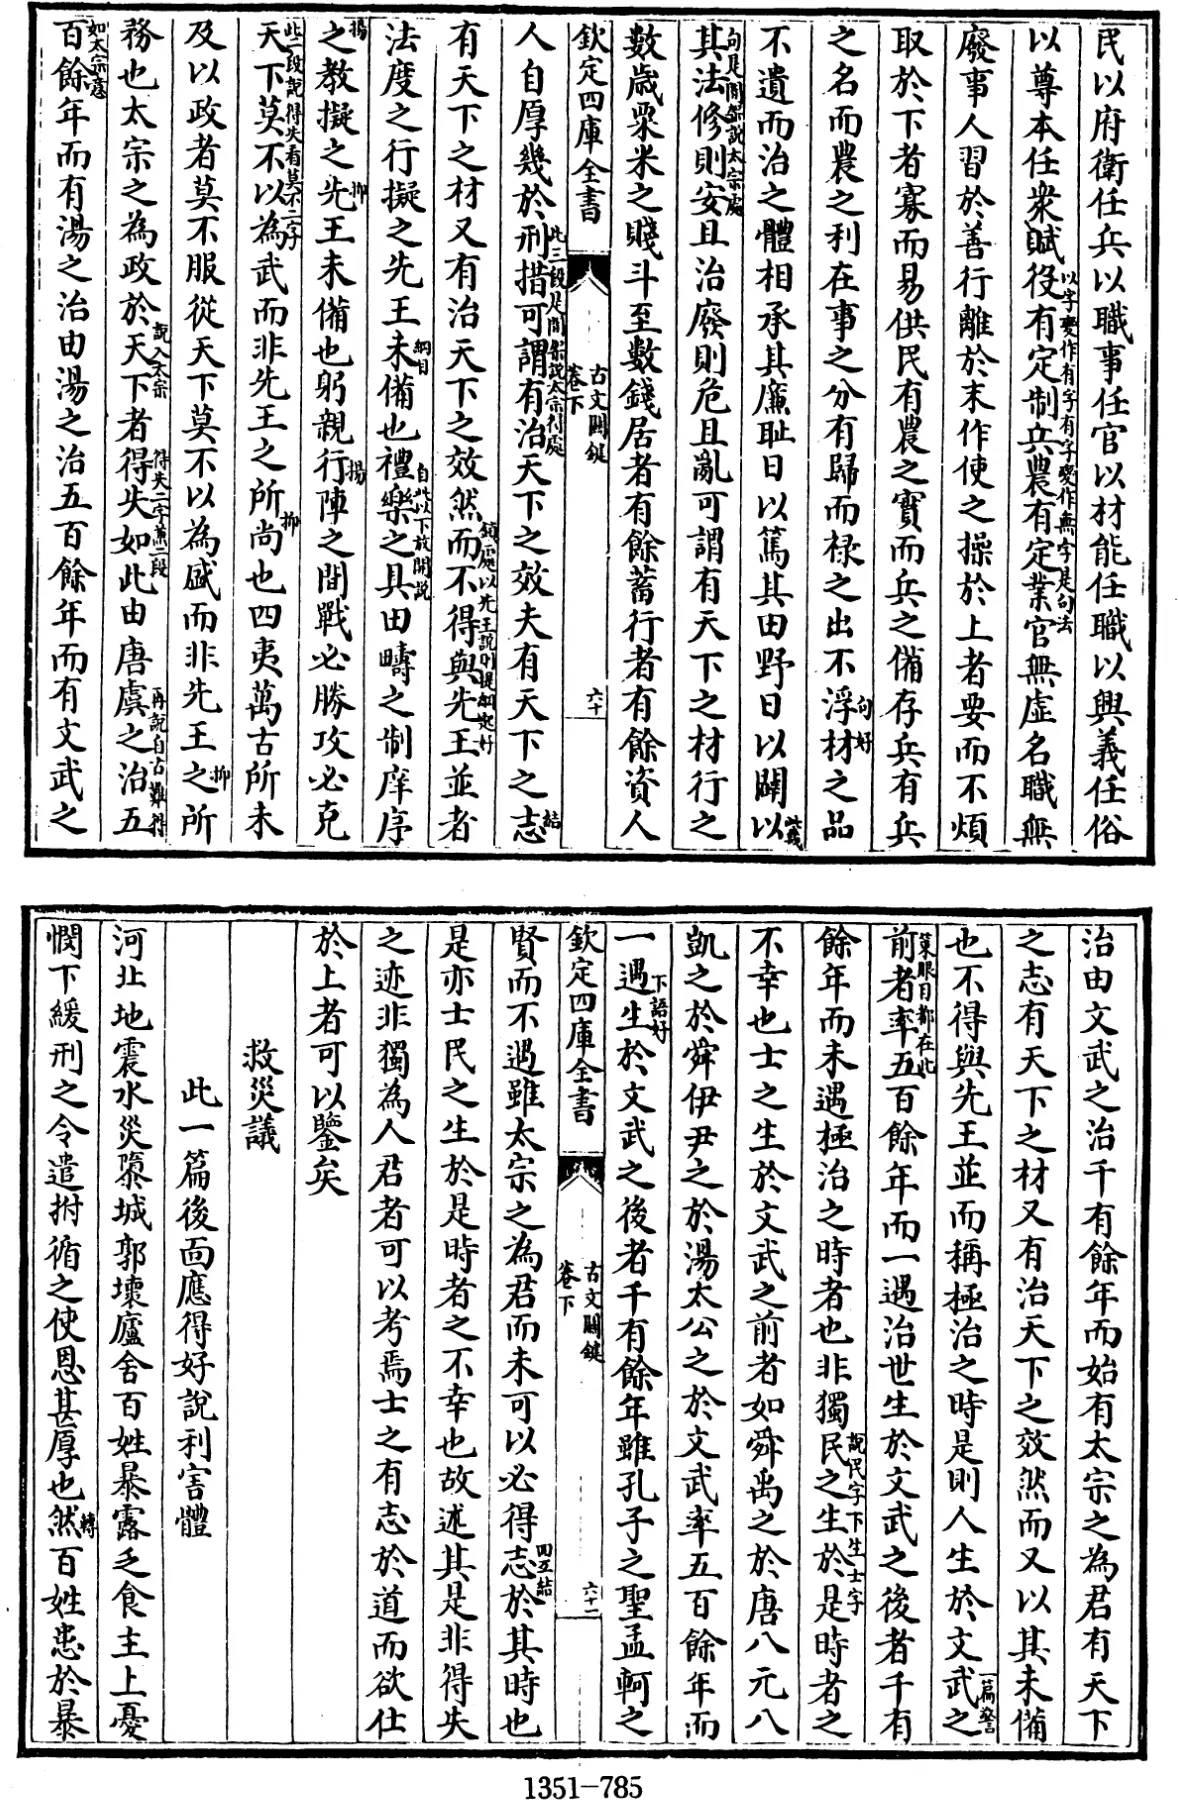 民以府衛任兵以職事任官以材能任職以興義任俗
以尊本任衆賦役有定制兵農有定業官無虛名職無
以字變作有字有字變作無字是句法
廢事人習於善行離於末作使之操於上者要而不煩
取於下者寡而易供民有農之實而兵之備存兵有兵
之名而農之利在事之分有歸而禄之出不浮材之品
句好
不遺而治之體相承其廉恥日以篤其田野日以闢以
此幾
句是關鍵說太宗處
其法修則安且治廢則危且亂可謂有天下之材行之
數歲粟米之賤斗至數錢居者有餘蓄行者有餘資人
欽定四庫全書
古文關鍵
卷下
六十
人自厚幾於刑措可謂有治天下之效夫有天下之志
此三段是關鍵說太宗得處
結
有天下之材又有治天下之效然而不得與先王並者
鎖處以先王說則提綱起好
法度之行擬之先王未備也禮樂之具田疇之制庠序
綱目
自此以下放開說
之教擬之先王未備也躬親行陣之間戰必勝攻必克
揚
抑
揚
此一段說得失看莫不二字
天下莫不以為武而非先王之所尚也四夷萬古所未
抑
及以政者莫不服從天下莫不以為盛而非先王之所
抑
務也太宗之為政於天下者得失如此由唐虞之治五
說入太宗
得失二字兼二段
再說自古難得
如太宗意
百餘年而有湯之治由湯之治五百餘年而有文武之
治由文武之治千有餘年而始有太宗之為君有天下
之志有天下之材又有治天下之效然而又以其未備
也不得與先王並而稱極治之時是則人生於文武之
一篇警
策眼目都在此
前者率五百餘年而一遇治世生於文武之後者千有
餘年而未遇極治之時者也非獨民之生於是時者之
說民字下生士字
不幸也士之生於文武之前者如舜禹之於唐八元八
凱之於舜伊尹之於湯太公之於文武率五百餘年而
一遇生於文武之後者千有餘年雖孔子之聖孟軻之
下語好
欽定四庫全書
古文關鍵
卷下
六十一
賢而不遇雖太宗之為君而未可以必得志於其時也
四五結
是亦士民之生於是時者之不幸也故述其是非得失
之迹非獨為人君者可以考焉士之有志於道而欲仕
於上者可以鑒矣
救災議
此一篇後面應得好說利害體
河北地震水災隳城郭壞廬舍百姓暴露乏食主上憂
憫下緩刑之令遣拊循之使恩甚厚也然百姓患於暴
轉
1351-785